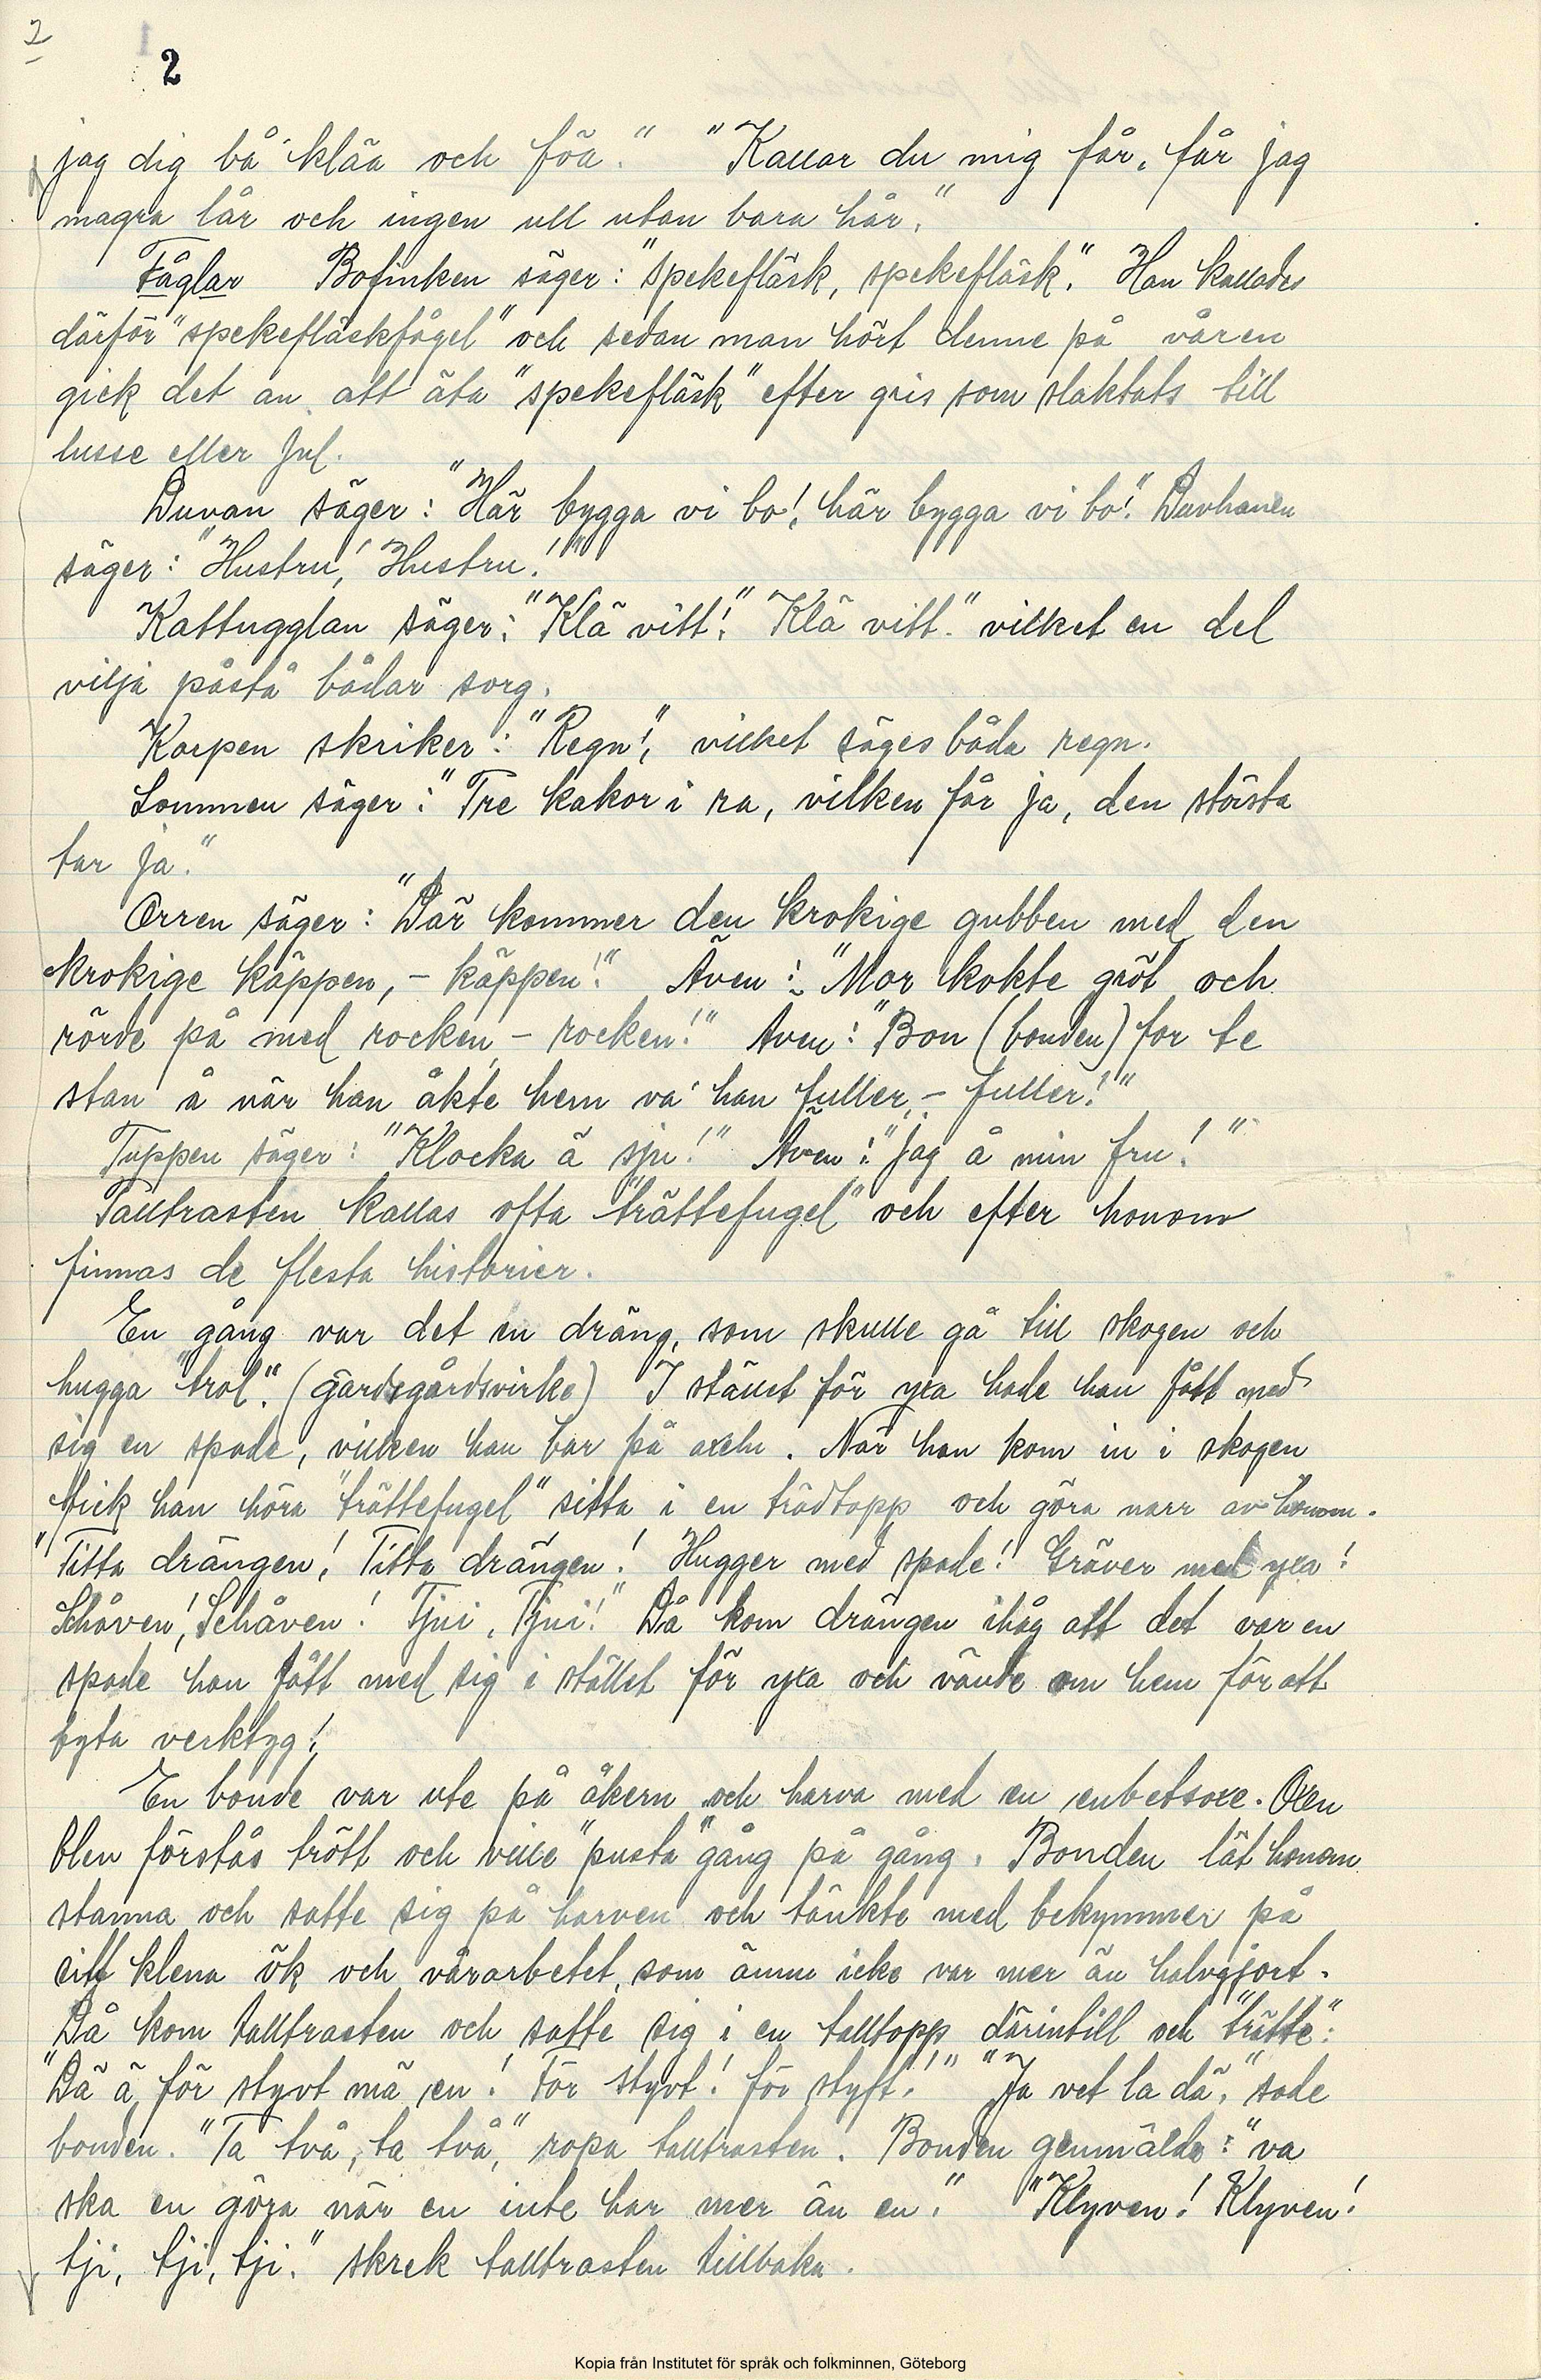 2
2
jag dig bå' kläa och föa." "Kallar du mig får, får jag
magra lår och ingen ull utan bara hår."
Fåglar Bofinken säger: "spekefläsk, spekefläsk". Han kallades
därför "spekefläskfågel" och sedan man hört denne på våren
gick det an att äta "spekefläsk" efter gris som slaktats till
lusse eller Jul.
Duvan säger: "Här bygga vi bo!, här bygga vi bo!" Duvhanen
säger: "Hustru! Hustru!"
Kattugglan säger: "Klä vitt!" "Klä vitt." vilket en del
vilja påstå bådar sorg.
Korpen skriker: "Regn!", vilket säges båda regn.
Lommen säger: "Tre kakor i ra, vilken får ja, den största
tar ja."
Orren säger: "Där kommer den krokige gubben med den
krokige käppen, - käppen!" Även: "Mor kokte gröt och
rörde på med rocken, - rocken!" Även: "Bon (bonden) for te
stan å när han åkte hem va' han fuller, - fuller!"
Tuppen säger: "Klocka ä sju!" Även: "Jag å min fru!"
Talltrasten kallas ofta "trättefugel" och efter honom
finnas de flesta historier.
En gång var det en dräng, som skulle gå till skogen och
hugga "trol". (gärdsgårdsvirke) I stället för yxa hade han fått med
sig en spade, vilken han bar på axeln. När han kom in i skogen
fick han höra "trättefugel" sitta i en trädtopp och göra narr av honom.
"Titta drängen! Titta drängen! Hugger med spade! Gräver med yxa!
Schåven! Schåven! Tjui, Tjui!" Då kom drängen ihåg att det var en
spade han fått med sig i stället för yxa och vände om hem för att
byta verktyg!
En bonde var ute på åkern och harva med en enbetsoxe. Oxen
blev förstås trött och ville "pusta" gång på gång. Bonden lät honom
stanna och satte sig på harven och tänkte med bekymmer på
sitt klena ök och vårarbetet, som ännu icke var mer än halvgjort.
Då kom talltrasten och satte sig i en talltopp därintill och "trätte":
"Dä ä för styvt mä en! För styvt! för styft!" "Ja vet la dä," sade
bonden. "Ta två, ta två," ropa talltrasten. Bonden genmälde: "va
ska en göra när en inte har mer än en." "Klyven! Klyven!
tji, tji, tji." skrek talltrasten tillbaka.
Kopia från Institutet för språk och folkminnen, Göteborg